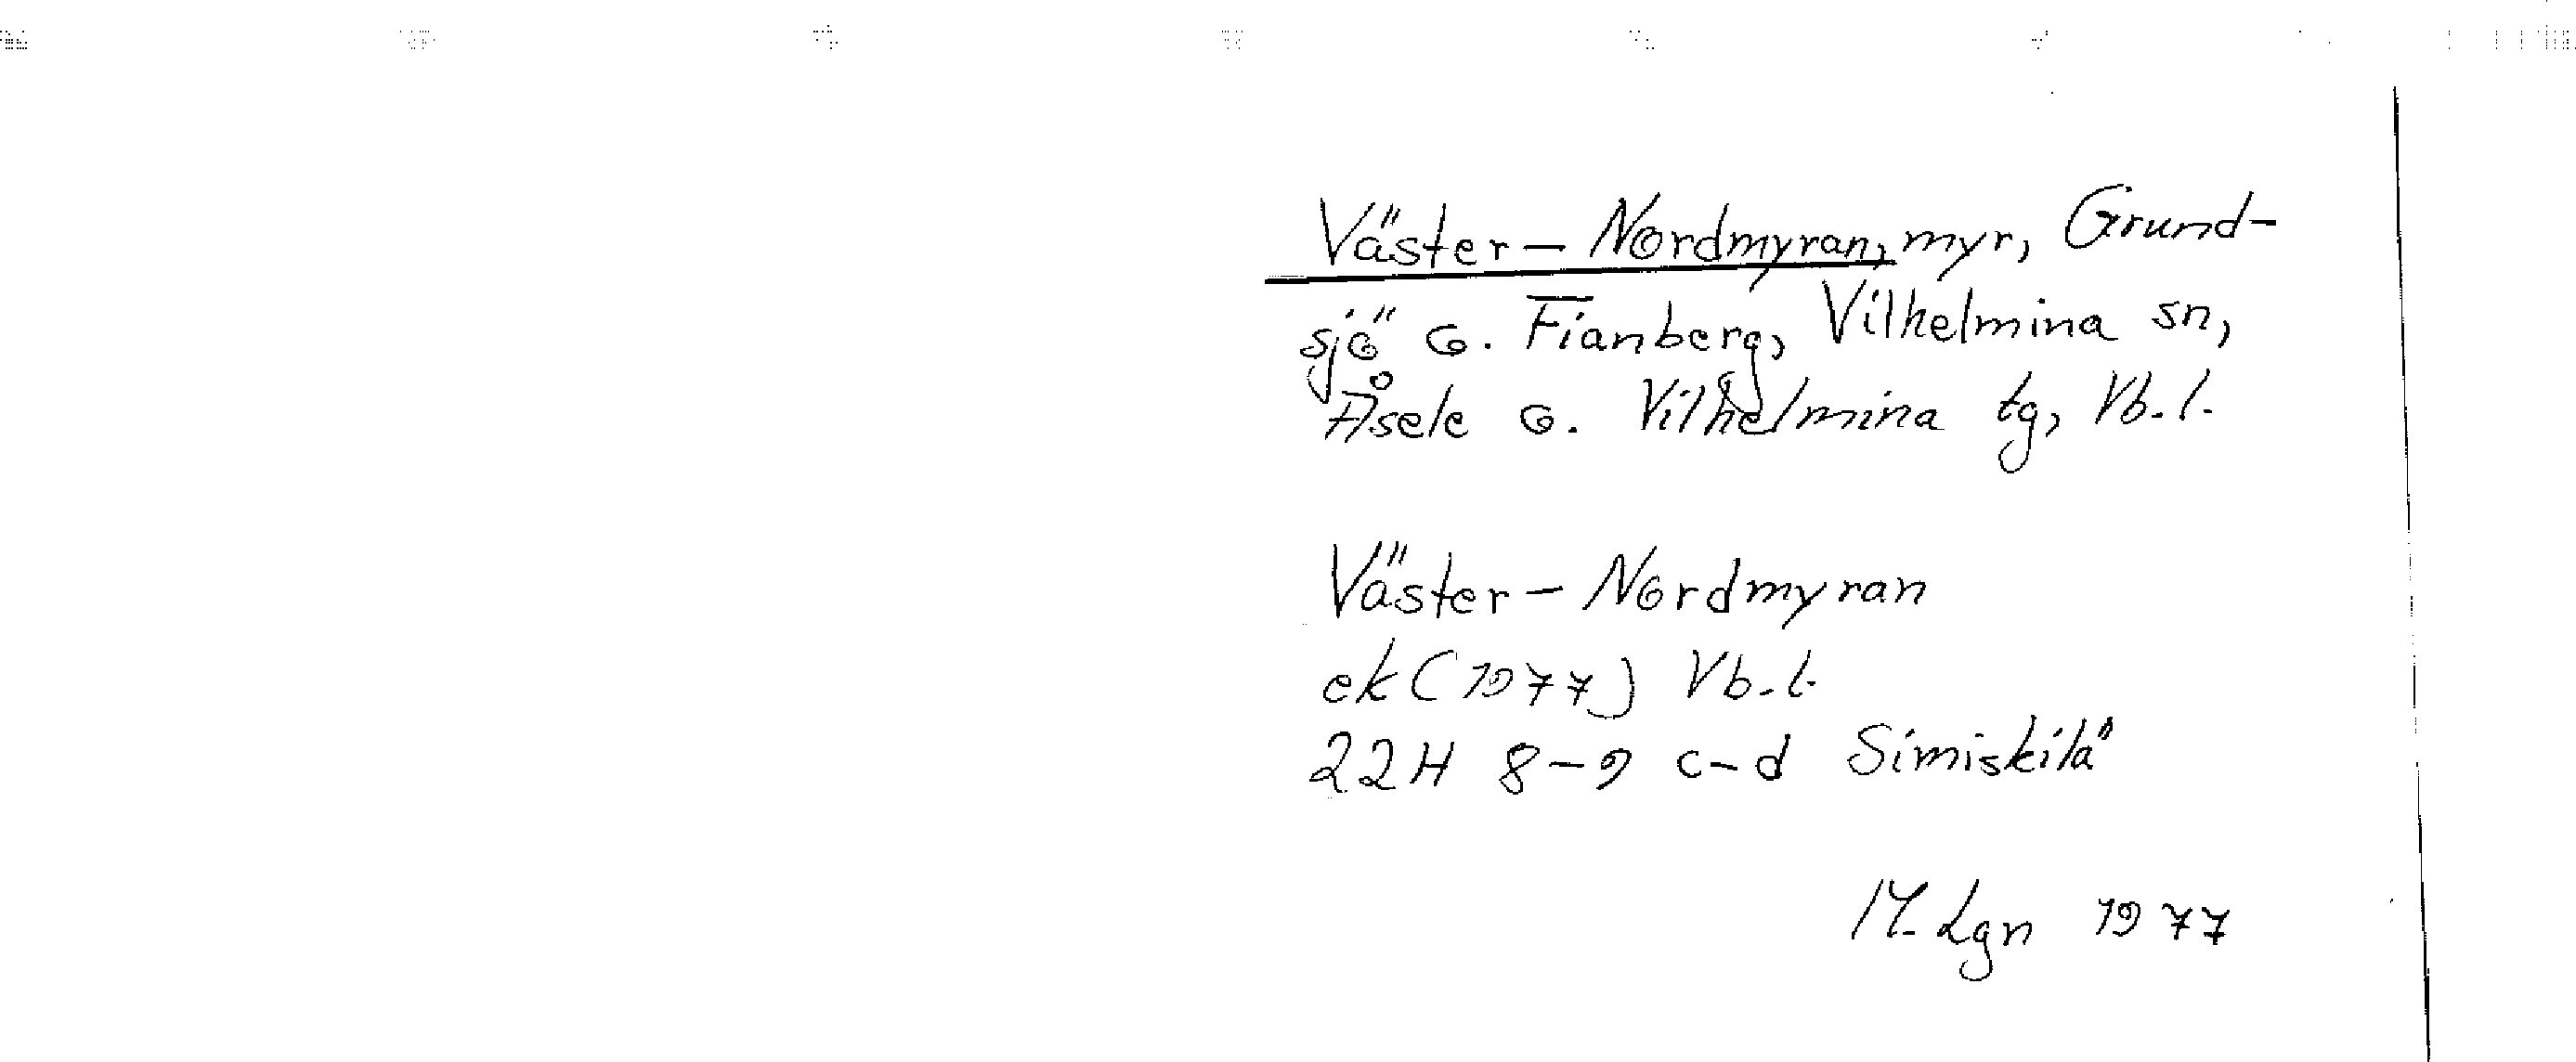 Väster-Nordmyran, myr, Grund-
sjö o. Fianberg, Vilhelmina sn,
Åsele o. Vilhelmina tg, Vb.l.
Väster-Nordmyran
ek (1977) Vb.l.
22H 8-9 c-d Simiskilä
M. Lgn 1977